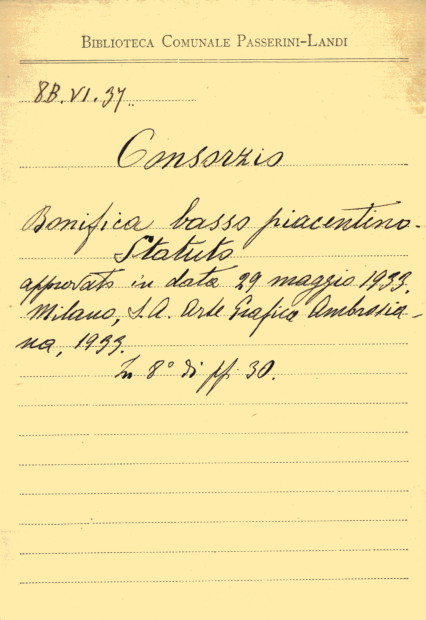 BIBLIOTECA COMUNALE PASSERINI-LANDI
8B.VI.37.
Consorzio
Bonifica basso piacentino.
Statuto
approvato in data 29 maggio 1933.
Milano, S.A. Arte Grafica Ambrosia-
na, 1933.
In 8° di pp. 30.